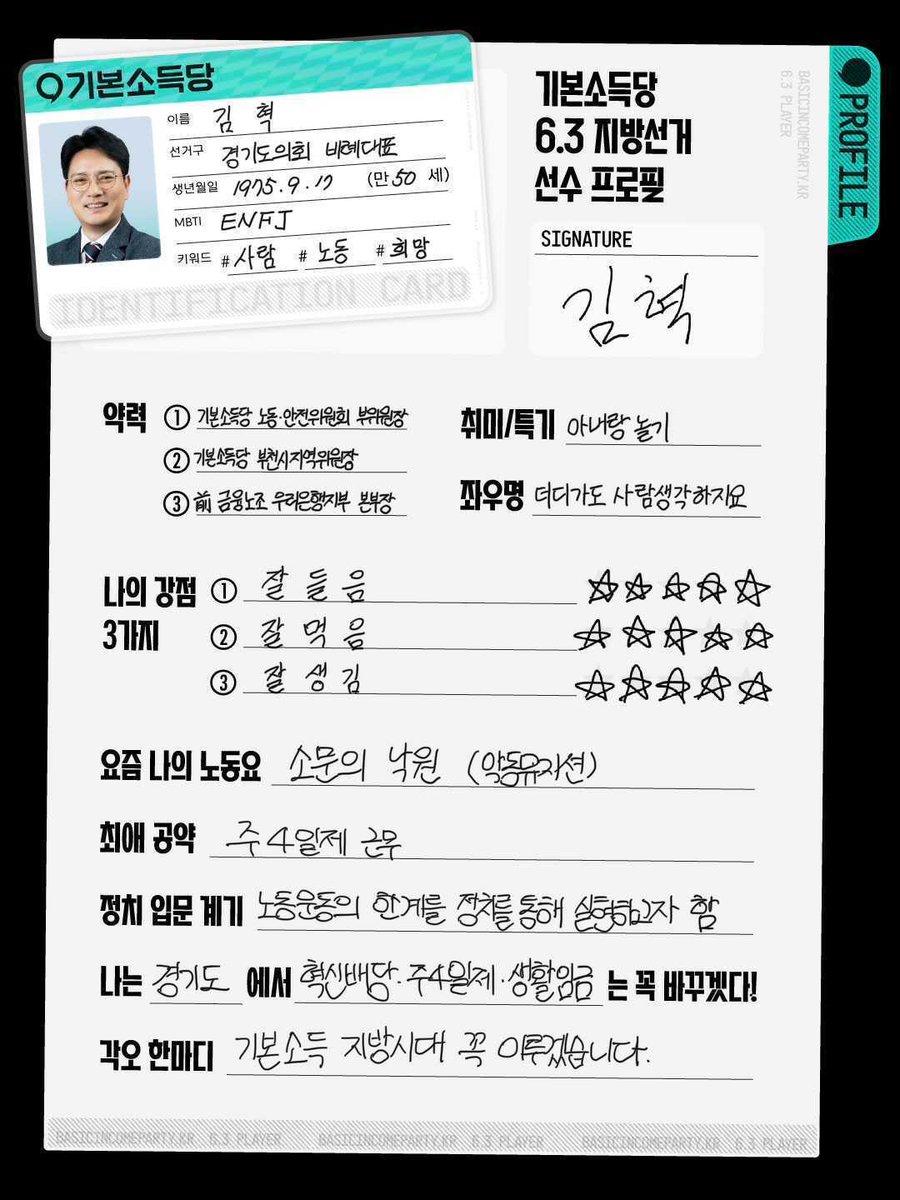 기본소득당
이름 김 혁
선거구 경기도의회 비례대표
생년월일 1975.9.17 (만 50 세)
MBTI ENFJ
키워드 #사람 #노동 #희망
IDENTIFICATION CARD
기본소득당
6.3 지방선거
선수 프로필
BASICINCOMEPARTY.KR
6.3 PLAYER
PROFILE
SIGNATURE
김혁
약력 ① 기본소득당 노동·안전위원회 부위원장
② 기본소득당 부천시지역위원장
③ 前 금융노조 우리은행지부 본부장
취미/특기 아내랑 놀기
좌우명 더디가도 사람생각하지요
나의 강점 ① 잘 들음 ☆☆☆☆☆
3가지 ② 잘 먹음 ☆☆☆☆☆
③ 잘 생김 ☆☆☆☆☆
요즘 나의 노동요 소문의 낙원 (악동뮤지션)
최애 공약 주4일제 근무
정치 입문 계기 노동운동의 한계를 정치를 통해 실현하고자 함
나는 경기도 에서 혁신배당·주4일제·생활임금 는 꼭 바꾸겠다!
각오 한마디 기본소득 지방시대 꼭 이루겠습니다.
BASICINCOMEPARTY.KR 6.3 PLAYER BASICINCOMEPARTY.KR 6.3 PLAYER BASICINCOMEPARTY.KR 6.3 PLAYER